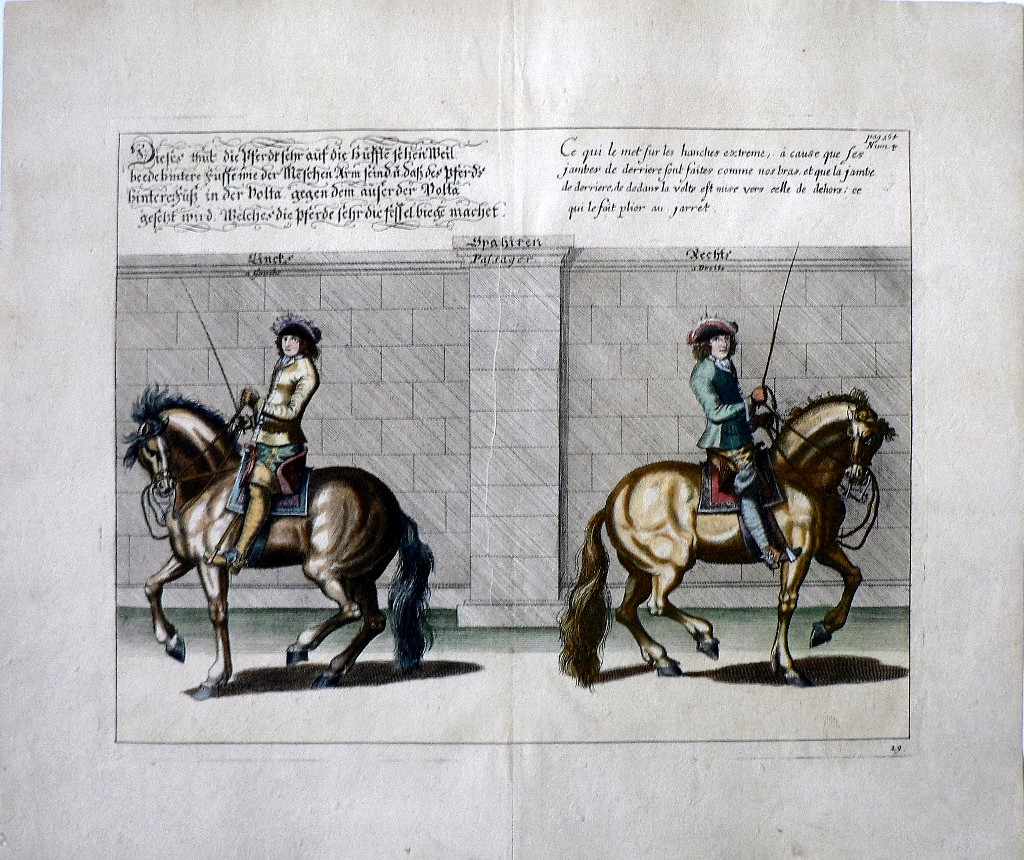 Dieses thut die Pferdt sehr auf die Hüffte setzen Weil
beede hintere Füsse wie der Meschen Arm seind u daß des Pferds
hintere Fuß in der Volta gegen dem auser der Volta
gesetzt wird. Welches die Pferde sehr die fessel biege machet.
Ce qui le met sur les hanches extreme, á cause que ses
jambes de derriere sont faites comme nos bras, et que la jambe
de derriere, de dedans la volte est mise vers celle de dehors; ce
qui le fait plier au jarret.
pag 264
Num.
Spahiren
Passager
Lincks
a Gauche
Rechts
a Droite
29